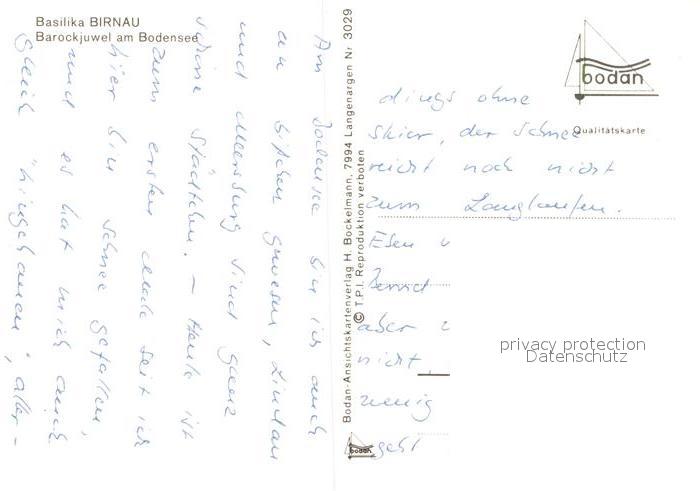 Basilika BIRNAU
Barockjuwel am Bodensee
Am Bodensee bin ich auch
ein bißchen gewesen, Lindau
und Meersburg sind ganz
schöne Städtchen. - Heute ist
zum ersten Male seit ich
hier bin Schnee gefallen,
und es hat mich auch
gleich "hingehauen", aller-
dings ohne
Skier, der Schnee
reicht noch nicht
zum Langlaufen.
Esen
Bernd
aber
nicht,
wenig
geht
Bodan-Ansichtskartenverlag H. Bockelmann, 7994 Langenargen Nr 3029
© T.P.I. Reproduktion verboten
bodan
Qualitätskarte
bodan
privacy protection
Datenschutz